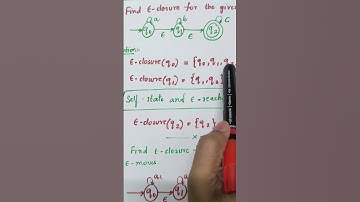 Find ε-closure for the given
a b c
q0 ε q1 ε q2
ε-closure(q0) = {q0, q1, q
ε-closure(q1) = {q1, q2}
Self-state and ε-reach
ε-closure(q2) = {q2}
x
Find ε-closure
ε-moves.
a
q0 ε q1